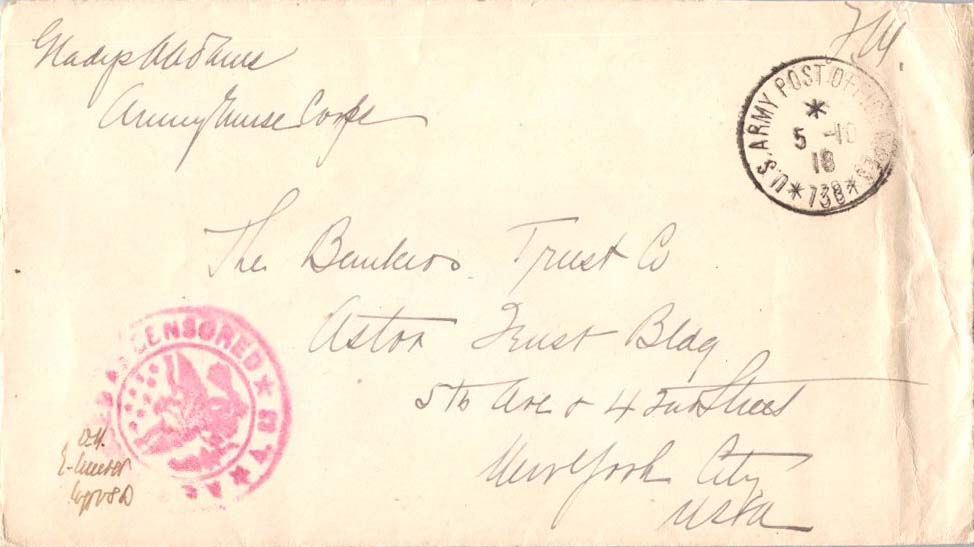 Gladys McAdams
Army Nurse Corps
U.S. ARMY POST OFFICE
5 -10
18
*738*
The Bankers Trust Co
Astor Trust Bldg
5th Ave & 42nd Street
New York City
USA
CENSORED
O.K.